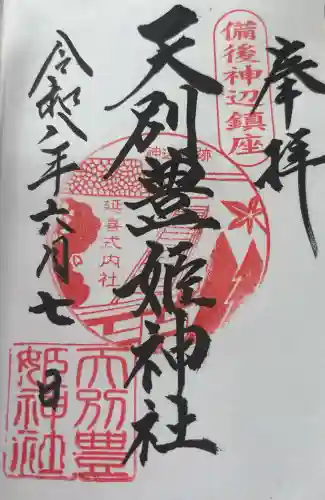 奉拝
備後神辺鎮座
天別豊姫神社
延喜式内社
令和八年六月七日
天別豊
姫神社